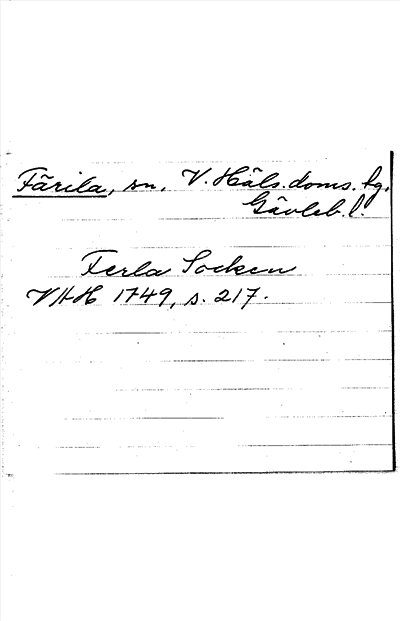 Färila, sn, V. Häls. doms. tg.
Gävleb. l.
Ferla Socken
VHH 1749, s. 217.